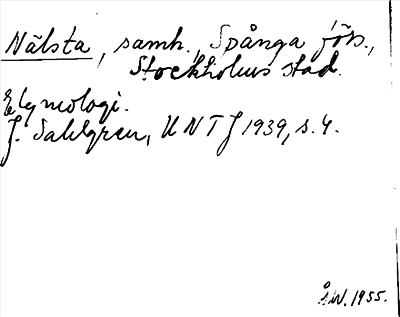 Nälsta, samh., Spånga förs.,
Stockholms stad.
Etymologi.
J. Sahlgren, UNT J 1939, s. 4.
Å.W. 1955.